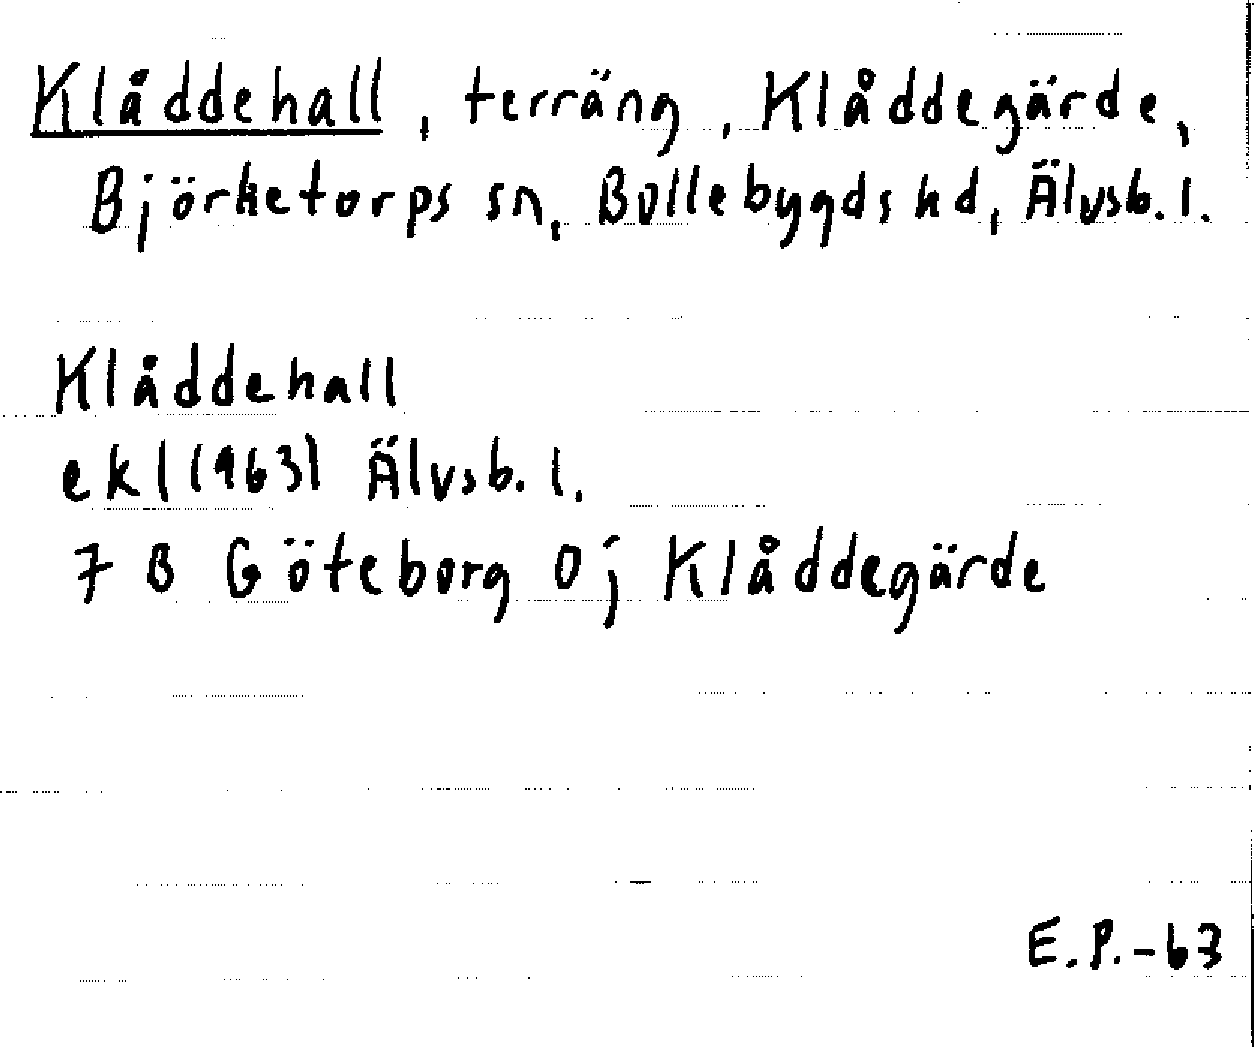 Klåddehall, terräng, Klåddegärde,
Björketorps sn, Bollebygds hd, Älvsb. l.
Klåddehall
ekl (1963) Älvsb. l.
7 B Göteborg 0j Klåddegärde
E.P.-63